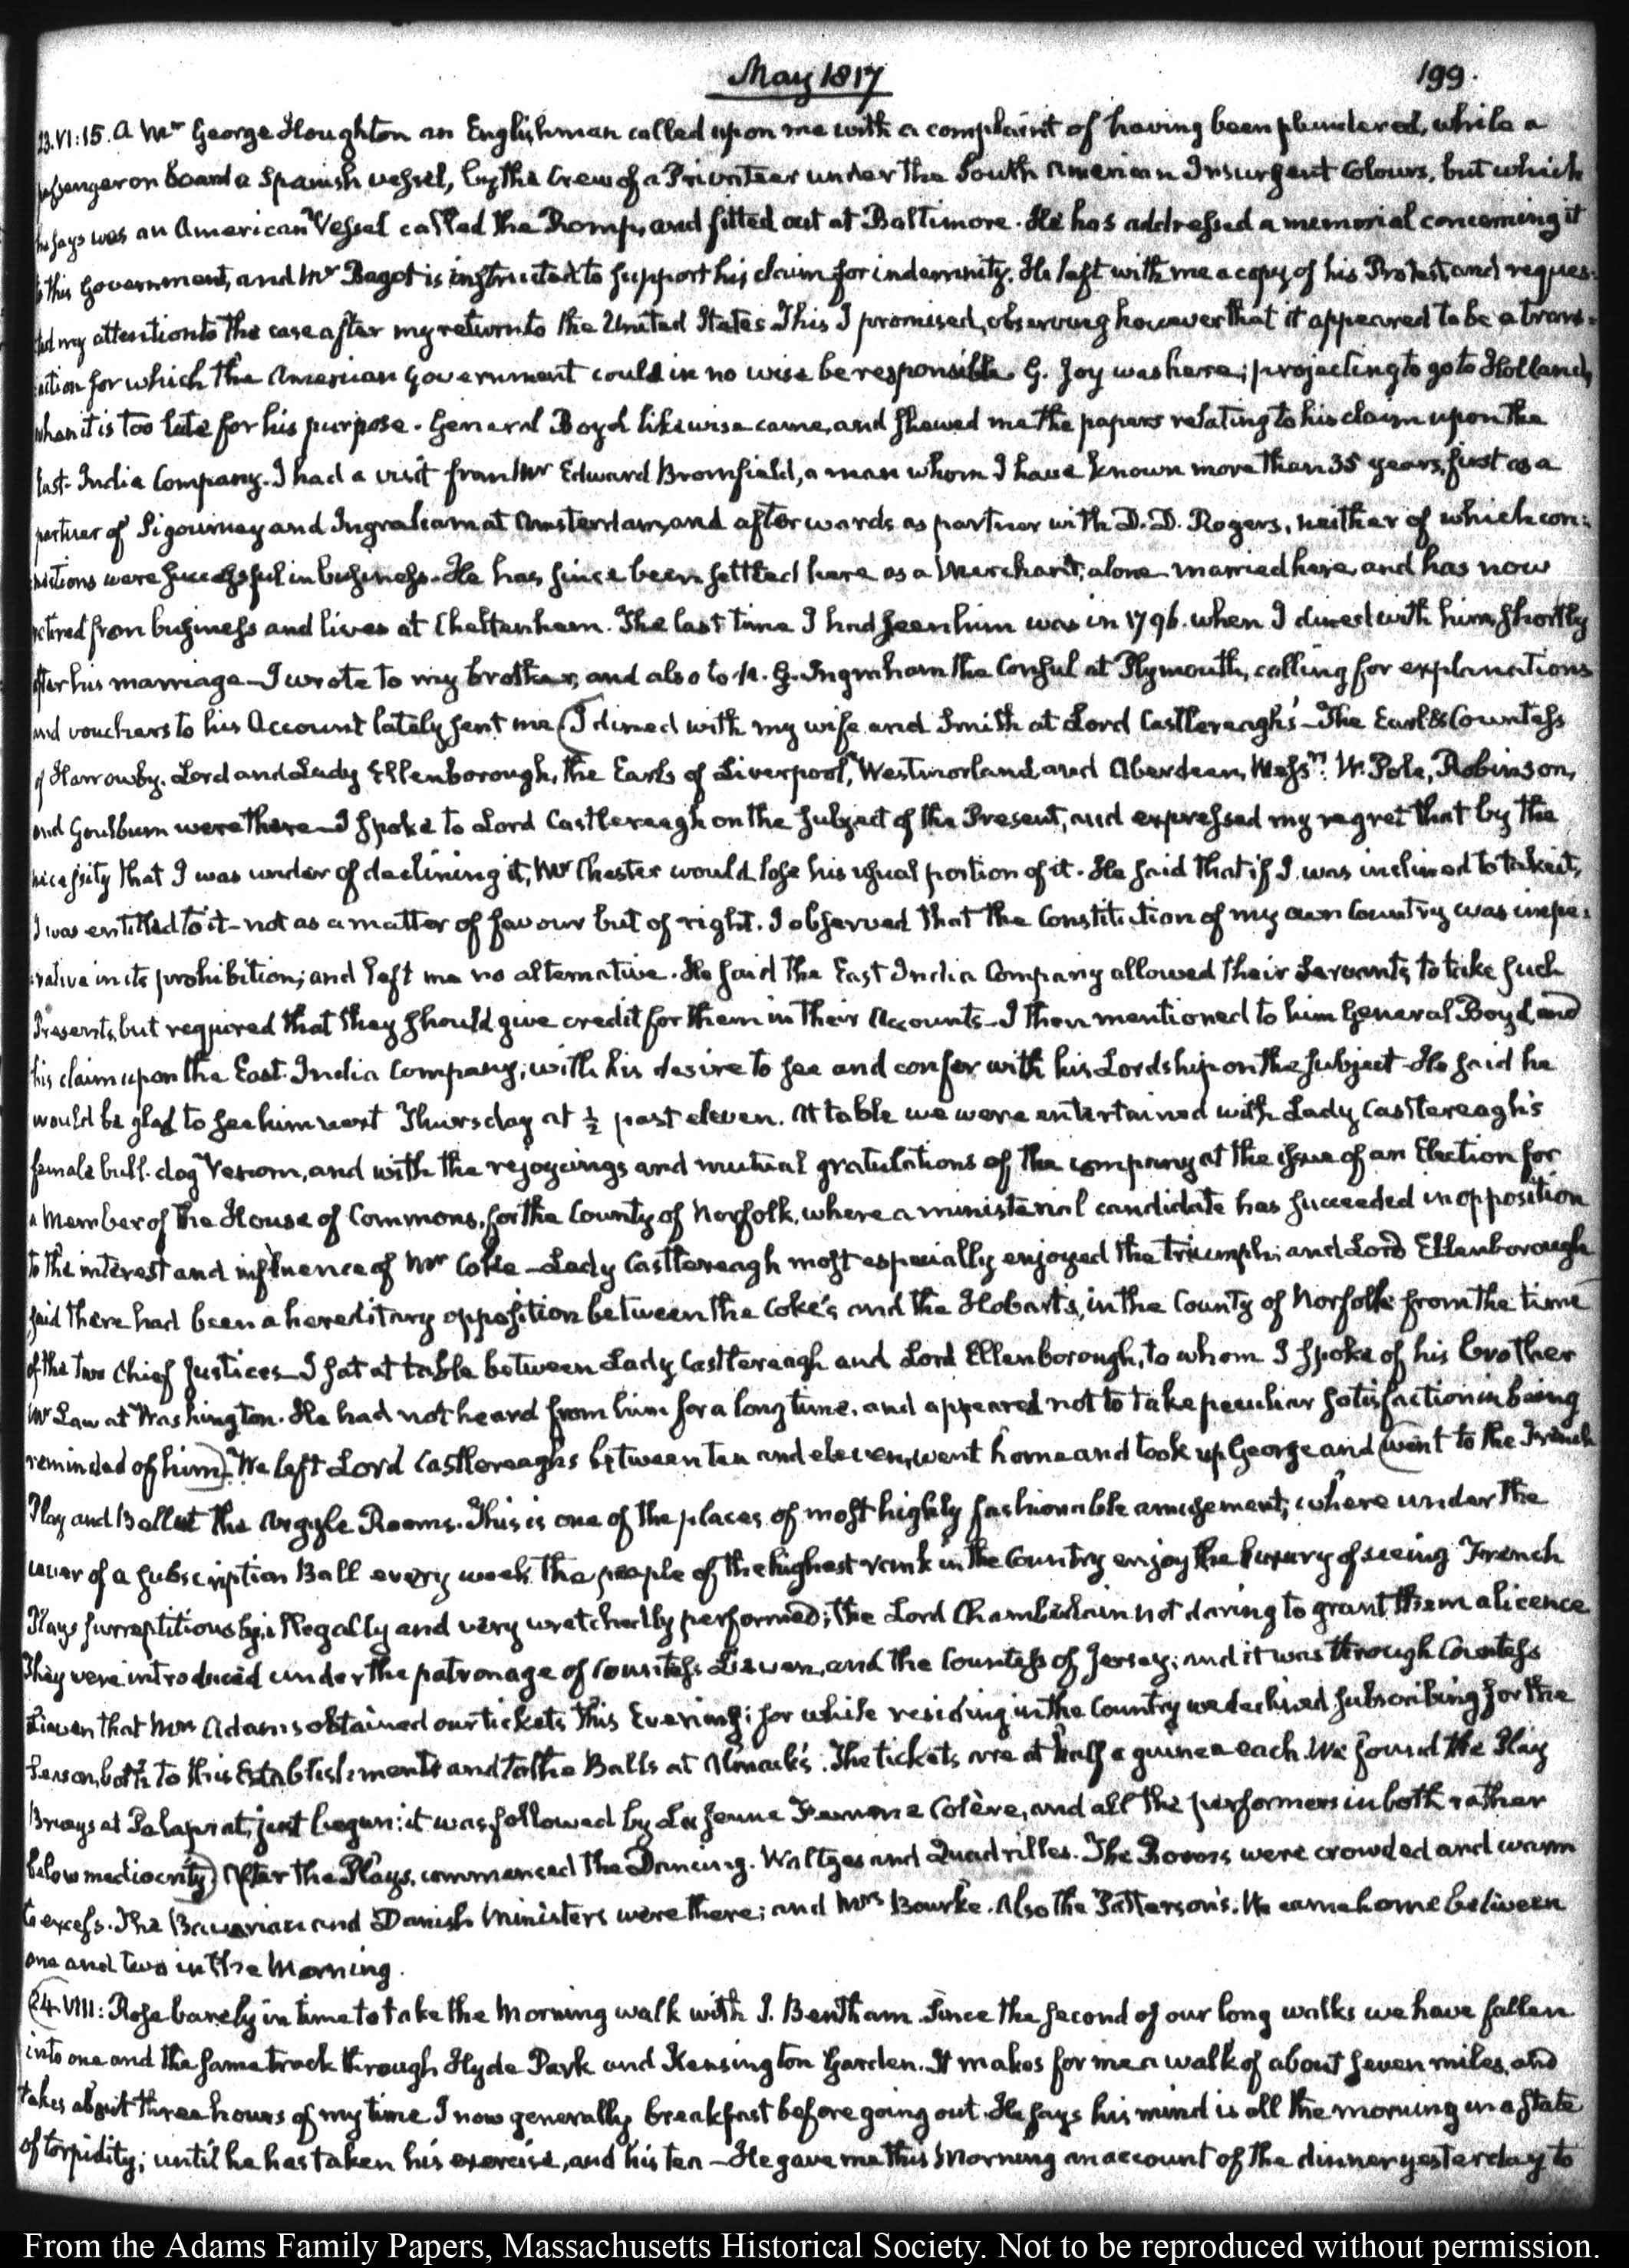 May 1817
199.
23. VI:15. A Mr George Houghton an Englishman called upon me with a complaint of having been plundered, while a
passenger on board a Spanish vessel, by the Crew of a Privateer under the South American Insurgent Colours, but which
he says was an American Vessel called the Romp, and fitted out at Baltimore. He has addressed a memorial concerning it
to this Government, and Mr Bagot is instructed to support his claim for indemnity. He left with me a copy of his Protest, and reques-
ted my attention to the case after my return to the United States. This I promised, observing however that it appeared to be a trans-
action for which the American Government could in no wise be responsible. G. Joy was here; projecting to go to Holland,
when it is too late for his purpose. General Boyd likewise came, and shewed me the papers relating to his claim upon the
East-India Company. I had a visit from Mr Edward Bromfield, a man whom I have known more than 35 years, first as a
partner of Sigourney and Ingraham at Amsterdam, and afterwards as partner with D. D. Rogers, neither of which con-
nections were successful in business. He has since been settled here as a Merchant, alone married here, and has now
retired from business and lives at Cheltenham. The last time I had seen him was in 1796. when I dined with him, shortly
after his marriage—I wrote to my brother, and also to N. G. Ingraham the Consul at Plymouth, calling for explanations
and vouchers to his Account lately sent me (I dined with my wife and Smith at Lord Castlereagh's—The Earl & Countess
of Harrowby. Lord and Lady Ellenborough, the Earls of Liverpool, Westmorland and Aberdeen, Messrs. W. Pole, Robinson,
and Goulburn were there—I spoke to Lord Castlereagh on the subject of the Present, and expressed my regret that by the
necessity that I was under of declining it, Mr Chester would lose his usual portion of it. He said that if I was inclined to take it,
I was entitled to it—not as a matter of favour but of right. I observed that the Constitution of my own Country was impe-
rative in its prohibition; and left me no alternative. He said the East India Company allowed their Servants to take such
Presents, but required that they should give credit for them in their Accounts—I then mentioned to him General Boyd, and
his claim upon the East-India Company; with his desire to see and confer with his Lordship on the subject—He said he
would be glad to see him next Thursday at ½ past eleven. At table we were entertained with Lady Castlereagh's
female bull-dog Venom, and with the rejoycings and mutual gratulations of the company at the issue of an Election for
a Member of the House of Commons, for the County of Norfolk, where a ministerial candidate has succeeded in opposition
to the interest and influence of Mr Coke—Lady Castlereagh most especially enjoyed the triumph; and Lord Ellenborough
said there had been a hereditary opposition between the Coke's and the Hobarts, in the County of Norfolk from the time
of the two Chief Justices—I sat at table between Lady Castlereagh and Lord Ellenborough, to whom I spoke of his brother
Mr Law at Washington. He had not heard from him for a long time, and appeared not to take peculiar satisfaction in being
reminded of him). We left Lord Castlereaghs between ten and eleven, went home and took up George and (went to the French
Play and Ball at the Argyle Rooms. This is one of the places of most highly fashionable amusement; where under the
cover of a subscription Ball every week the people of the highest rank in the Country enjoy the luxury of seeing French
Plays surreptitiously, illegally and very wretchedly performed; the Lord Chamberlain not daring to grant them a licence
They were introduced under the patronage of Countess Lieven, and the Countess of Jersey; and it was through Countess
Lieven that Mrs Adams obtained our tickets this Evening; for while residing in the Country we declined subscribing for the
Season, both to this Establishment and to the Balls at Almack's. The tickets are at half a guinea each. We found the Play
Brueys at Palaprat, just begun: it was followed by La Jeune Femme Colère, and all the performers in both rather
below mediocrity) After the Plays, commenced the Dancing. Waltzes and Quadrilles. The Rooms were crowded and warm
to excess. The Bavarian and Danish Ministers were there; and Mrs Bourke. Also the Patterson's. We came home between
one and two in the Morning.
(24. VIII: Rose barely in time to take the Morning walk with J. Bentham. Since the second of our long walks we have fallen
into one and the same track through Hyde Park and Kensington Garden. It makes for me a walk of about seven miles, and
takes about three hours of my time I now generally breakfast before going out. He says his mind is all the morning in a state
of torpidity; until he has taken his exercise, and his tea—He gave me this Morning an account of the dinner yesterday to
From the Adams Family Papers, Massachusetts Historical Society. Not to be reproduced without permission.